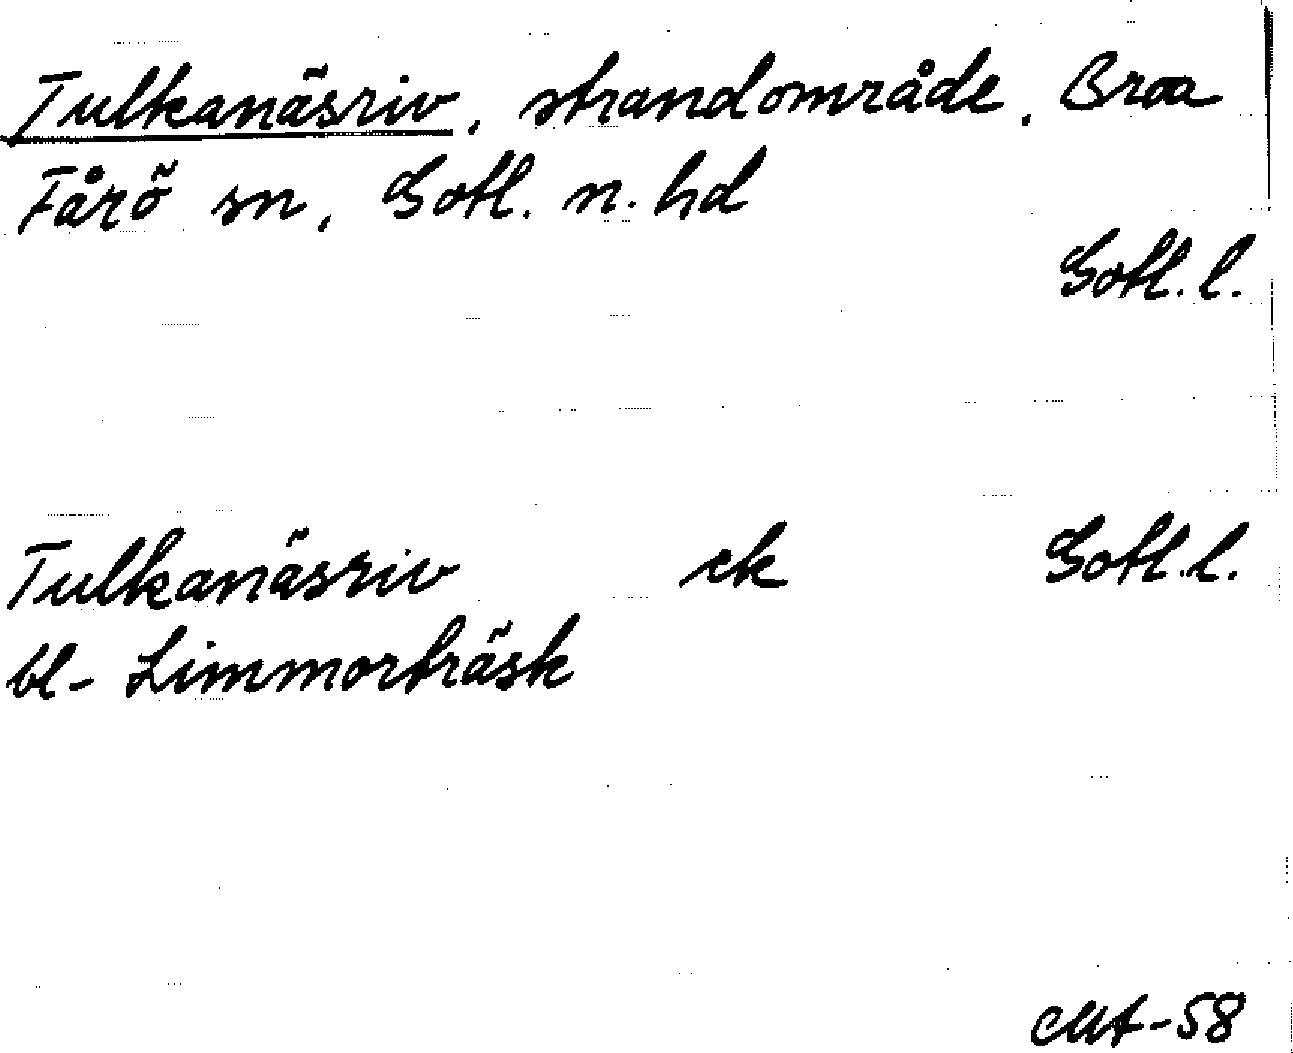 Tulkanäsriv, strandområde, Broa
Fårö sn, Gotl. n. hd
Gotl. l.
Tulkanäsriv ek Gotl. l.
bl- Limmorträsk
-58